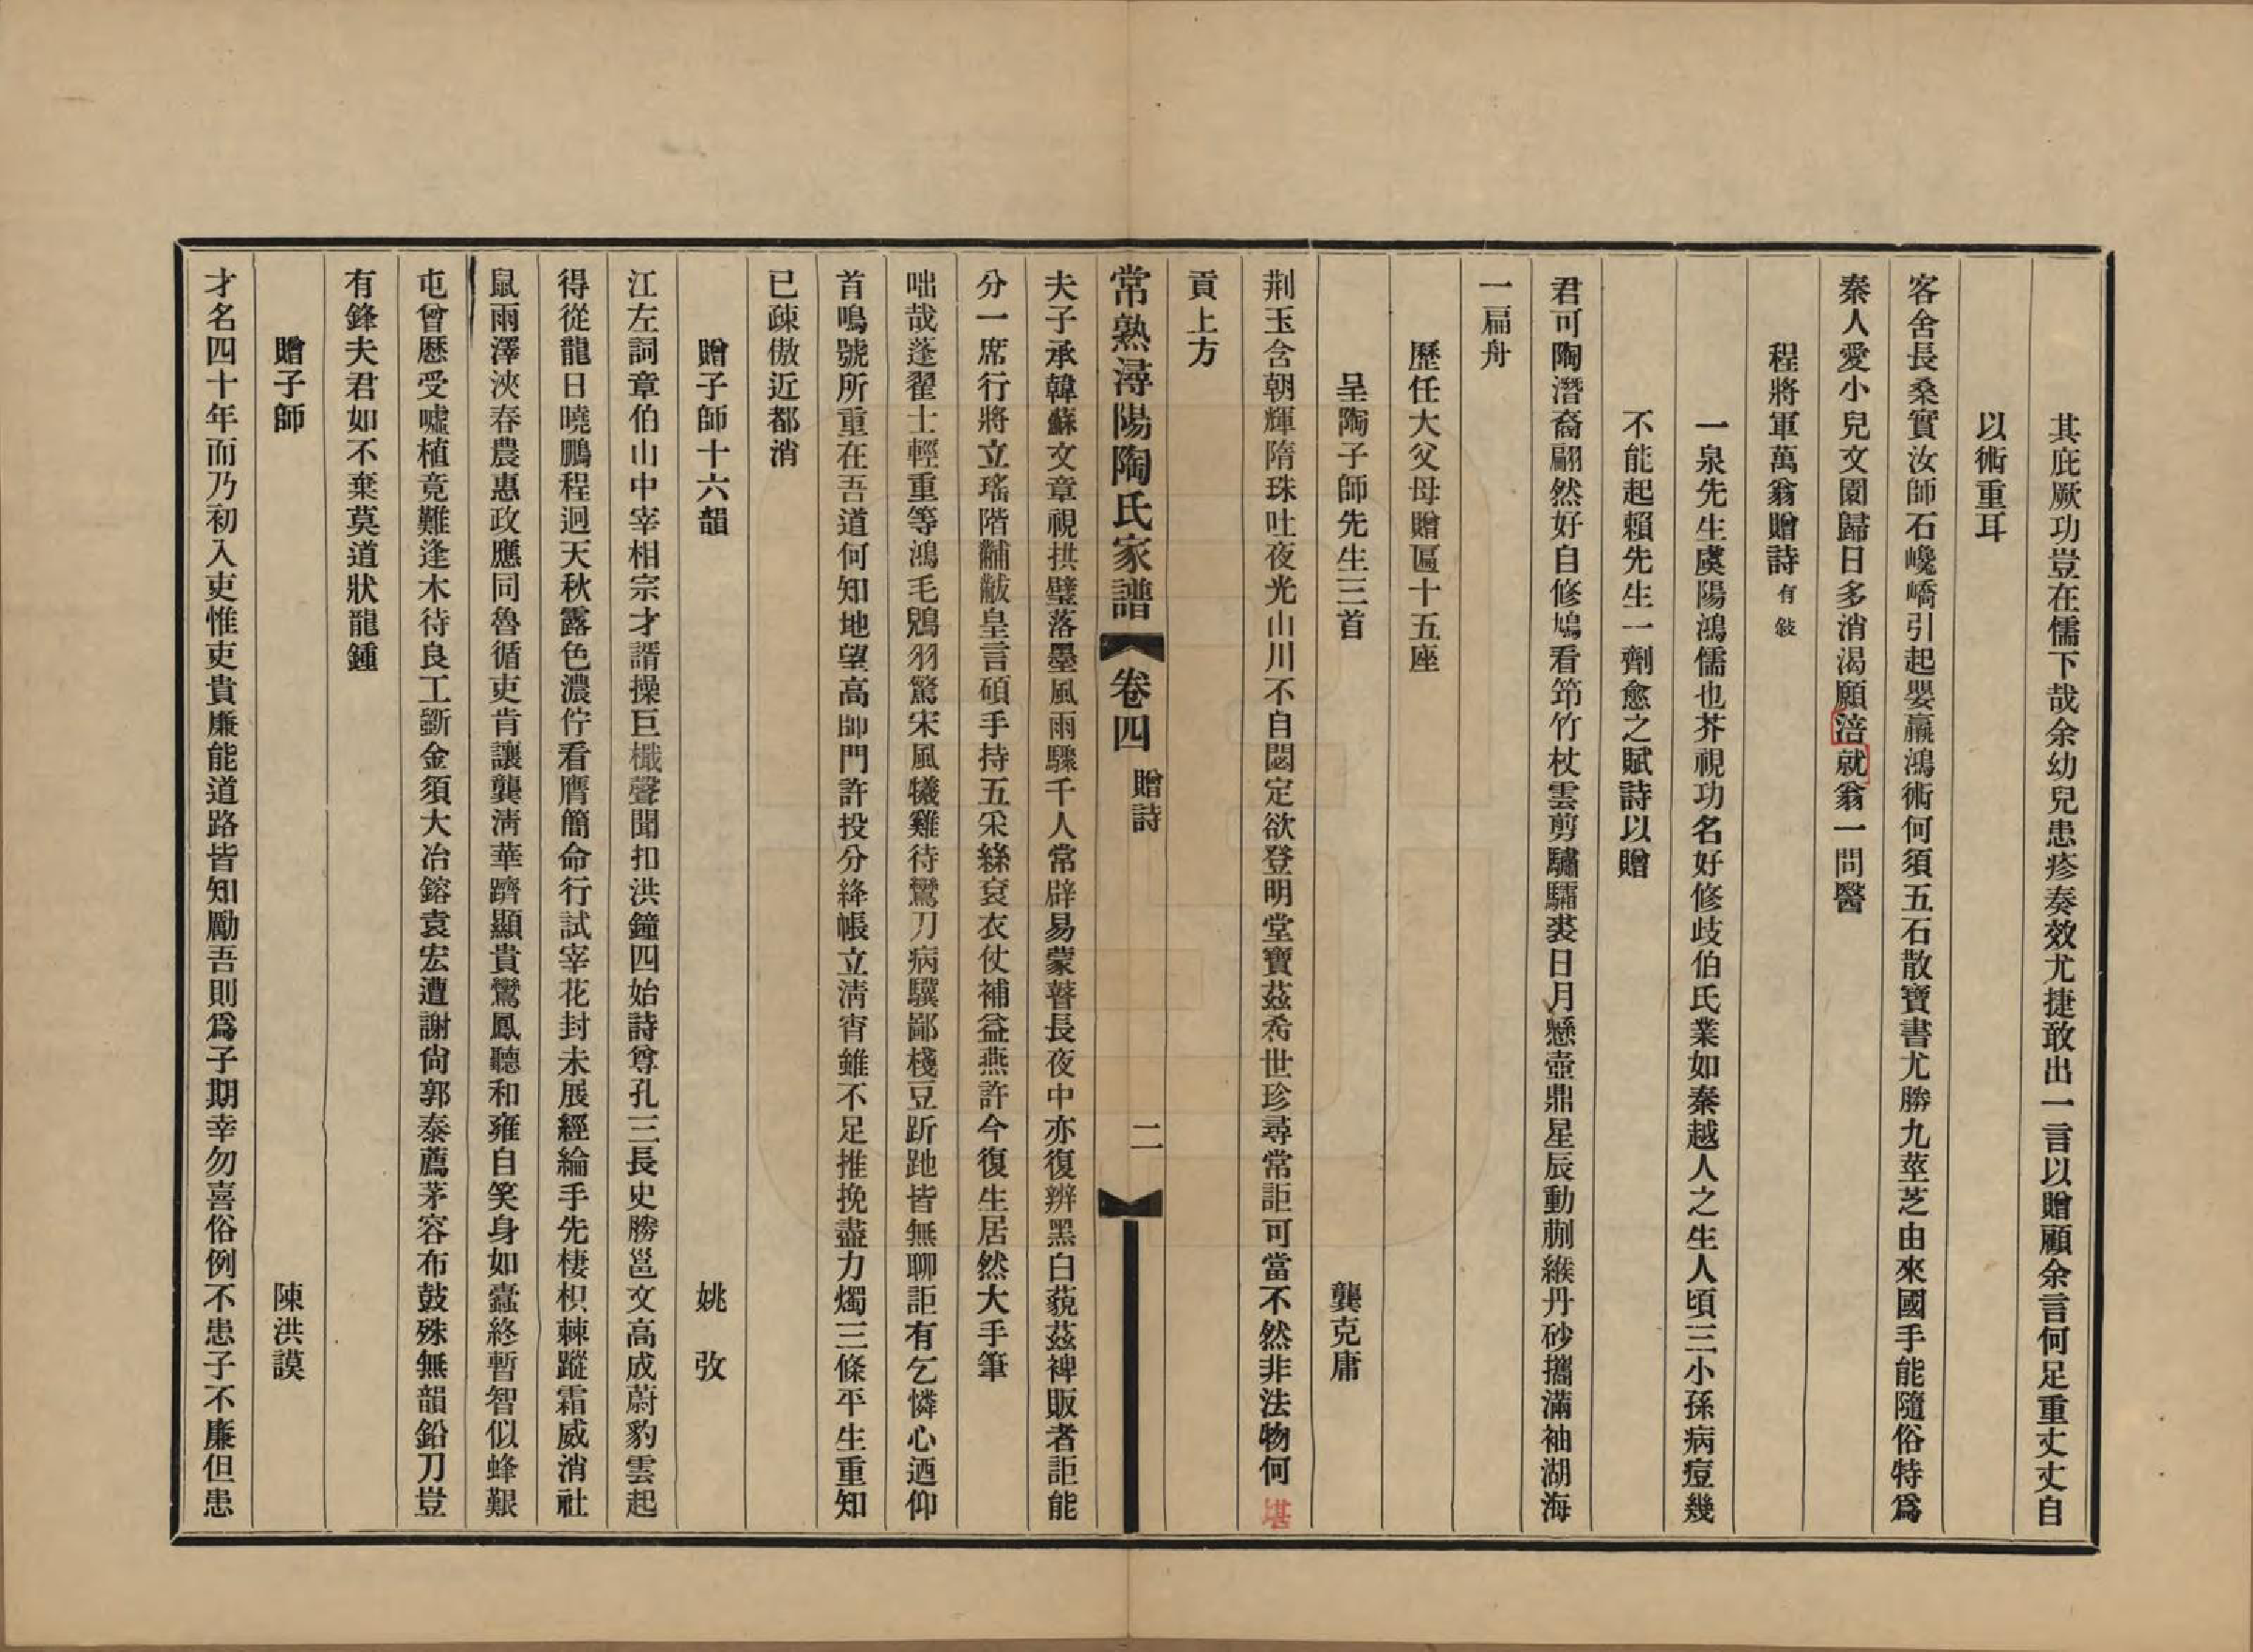 其庇厥功豈在儒下哉余幼兒患疹奏效尤捷敢出一言以贈顧余言何足重丈丈自
以術重耳
客舍長桑實汝師石巉嶠引起嬰羸鴻術何須五石散寶書尤勝九莖芝由來國手能隨俗特爲
秦人愛小兒文園歸日多消渴願涪就翁一問醫
程將軍萬翁贈詩有敍
一泉先生虞陽鴻儒也芥視功名好修歧伯氏業如秦越人之生人頃三小孫病痘幾
不能起賴先生一劑愈之賦詩以贈
君可陶潛裔翩然好自修鳩看笻竹杖雲剪驌驦裘日月懸壺鼎星辰動蒯緱丹砂攜滿袖湖海
一扁舟
歷任大父母贈匾十五座
呈陶子師先生三首 龔克庸
荆玉含朝輝隋珠吐夜光山川不自閟定欲登明堂寶茲希世珍尋常詎可當不然非法物何堪
貢上方
常熟潯陽陶氏家譜 卷四 贈詩 二
夫子承韓蘇文章視拱璧落墨風雨驟千人常辟易蒙瞽長夜中亦復辨黑白藐茲裨販者詎能
分一席行將立瑤階黼黻皇言碩手持五采絲袞衣仗補益燕許今復生居然大手筆
咄哉蓬翟士輕重等鴻毛鶂羽驚宋風犧雞待鸞刀病驥鄙棧豆跅跑皆無聊詎有乞憐心迺仰
首鳴號所重在吾道何知地望高師門許投分絳帳立淸宵雖不足推挽盡力燭三條平生重知
已疎傲近都消
贈子師十六韻 姚攷
江左詞章伯山中宰相宗才諝操巨檝聲聞扣洪鐘四始詩尊孔三長史勝邕文高成蔚豹雲起
得從龍日曉鵬程迥天秋露色濃佇看膺簡命行試宰花封未展經綸手先棲枳棘蹤霜威消社
鼠雨澤浹春農惠政應同魯循吏肯讓龔淸華躋顯貴鸞鳳聽和雍自笑身如蠹終暫智似蜂艱
屯曾歷受噓植竟難逢木待良工斲金須大冶鎔袁宏遭謝尙郭泰薦茅容布鼓殊無韻鉛刀豈
有鋒夫君如不棄莫道狀龍鍾
贈子師 陳洪謨
才名四十年而乃初入吏惟吏貴廉能道路皆知勵吾則爲子期幸勿喜俗例不患子不廉但患